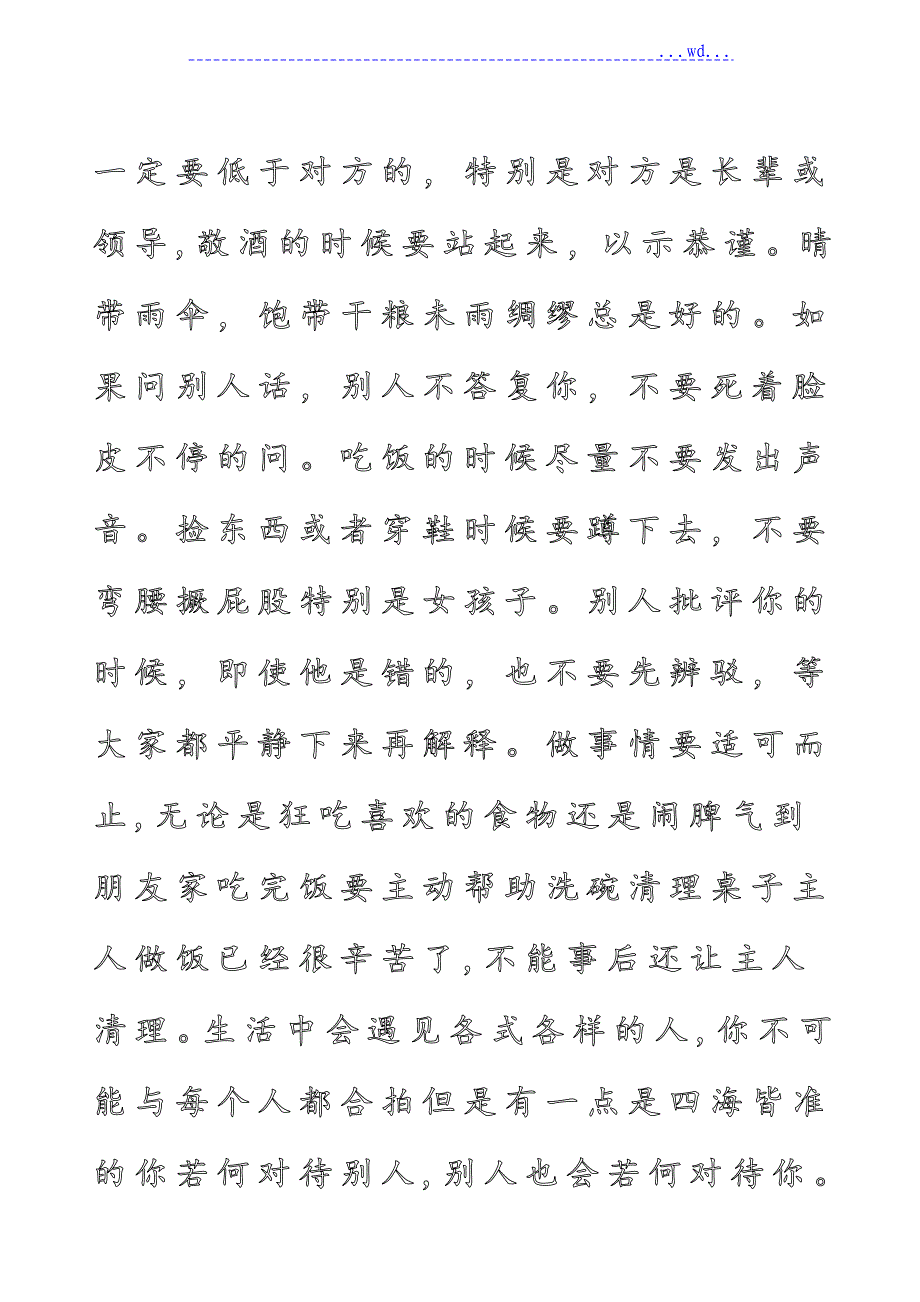 ...wd...
一定要低于对方的，特别是对方是长辈或
领导,敬酒的时候要站起来，以示恭谨。晴
带雨伞，饱带干粮未雨绸缪总是好的。如
果问别人话，别人不答复你，不要死着脸
皮不停的问。吃饭的时候尽量不要发出声
音。捡东西或者穿鞋时候要蹲下去，不要
弯腰撅屁股特别是女孩子。别人批评你的
时候，即使他是错的，也不要先辨驳，等
大家都平静下来再解释。做事情要适可而
止,无论是狂吃喜欢的食物还是闹脾气到
朋友家吃完饭要主动帮助洗碗清理桌子主
人做饭已经很辛苦了,不能事后还让主人
清理。生活中会遇见各式各样的人,你不可
能与每个人都合拍但是有一点是四海皆准
的你若何对待别人,别人也会若何对待你。